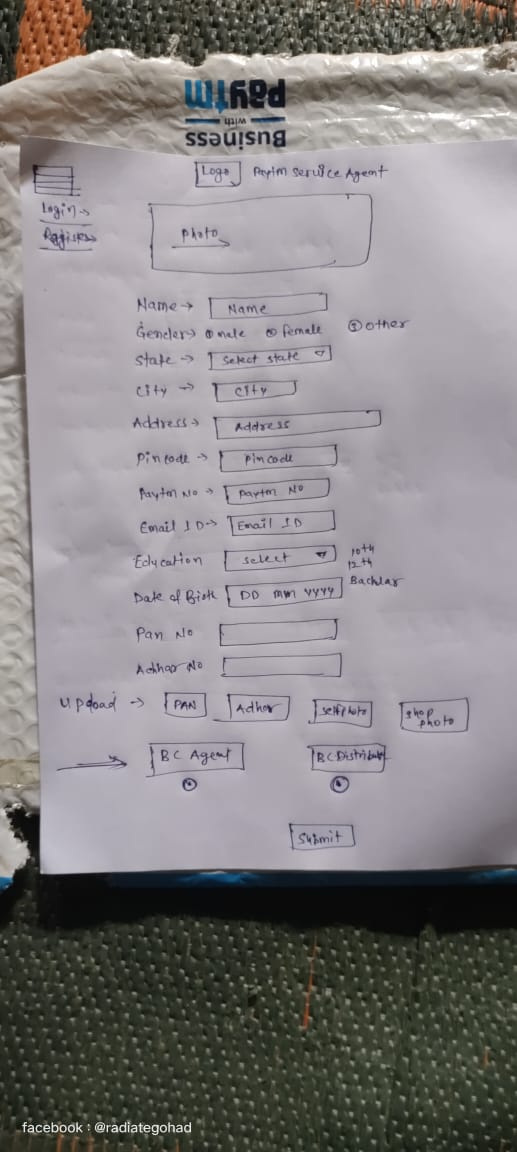 Business
with
paytm
Logo Paytm Service Agent
Login →
Register →
Photo
Name → Name
Gender → male female other
State → Select state
City → City
Address → Address
Pincode → Pincode
Paytm No → Paytm No
Email ID → Email ID
Education select 10th
12th
Bachlar
Date of Birth DD mm yyyy
Pan No
Adhar No
Upload → PAN Adhar selfphoto shop photo
BC Agent BC Distributor
Submit
facebook : @radiategohad